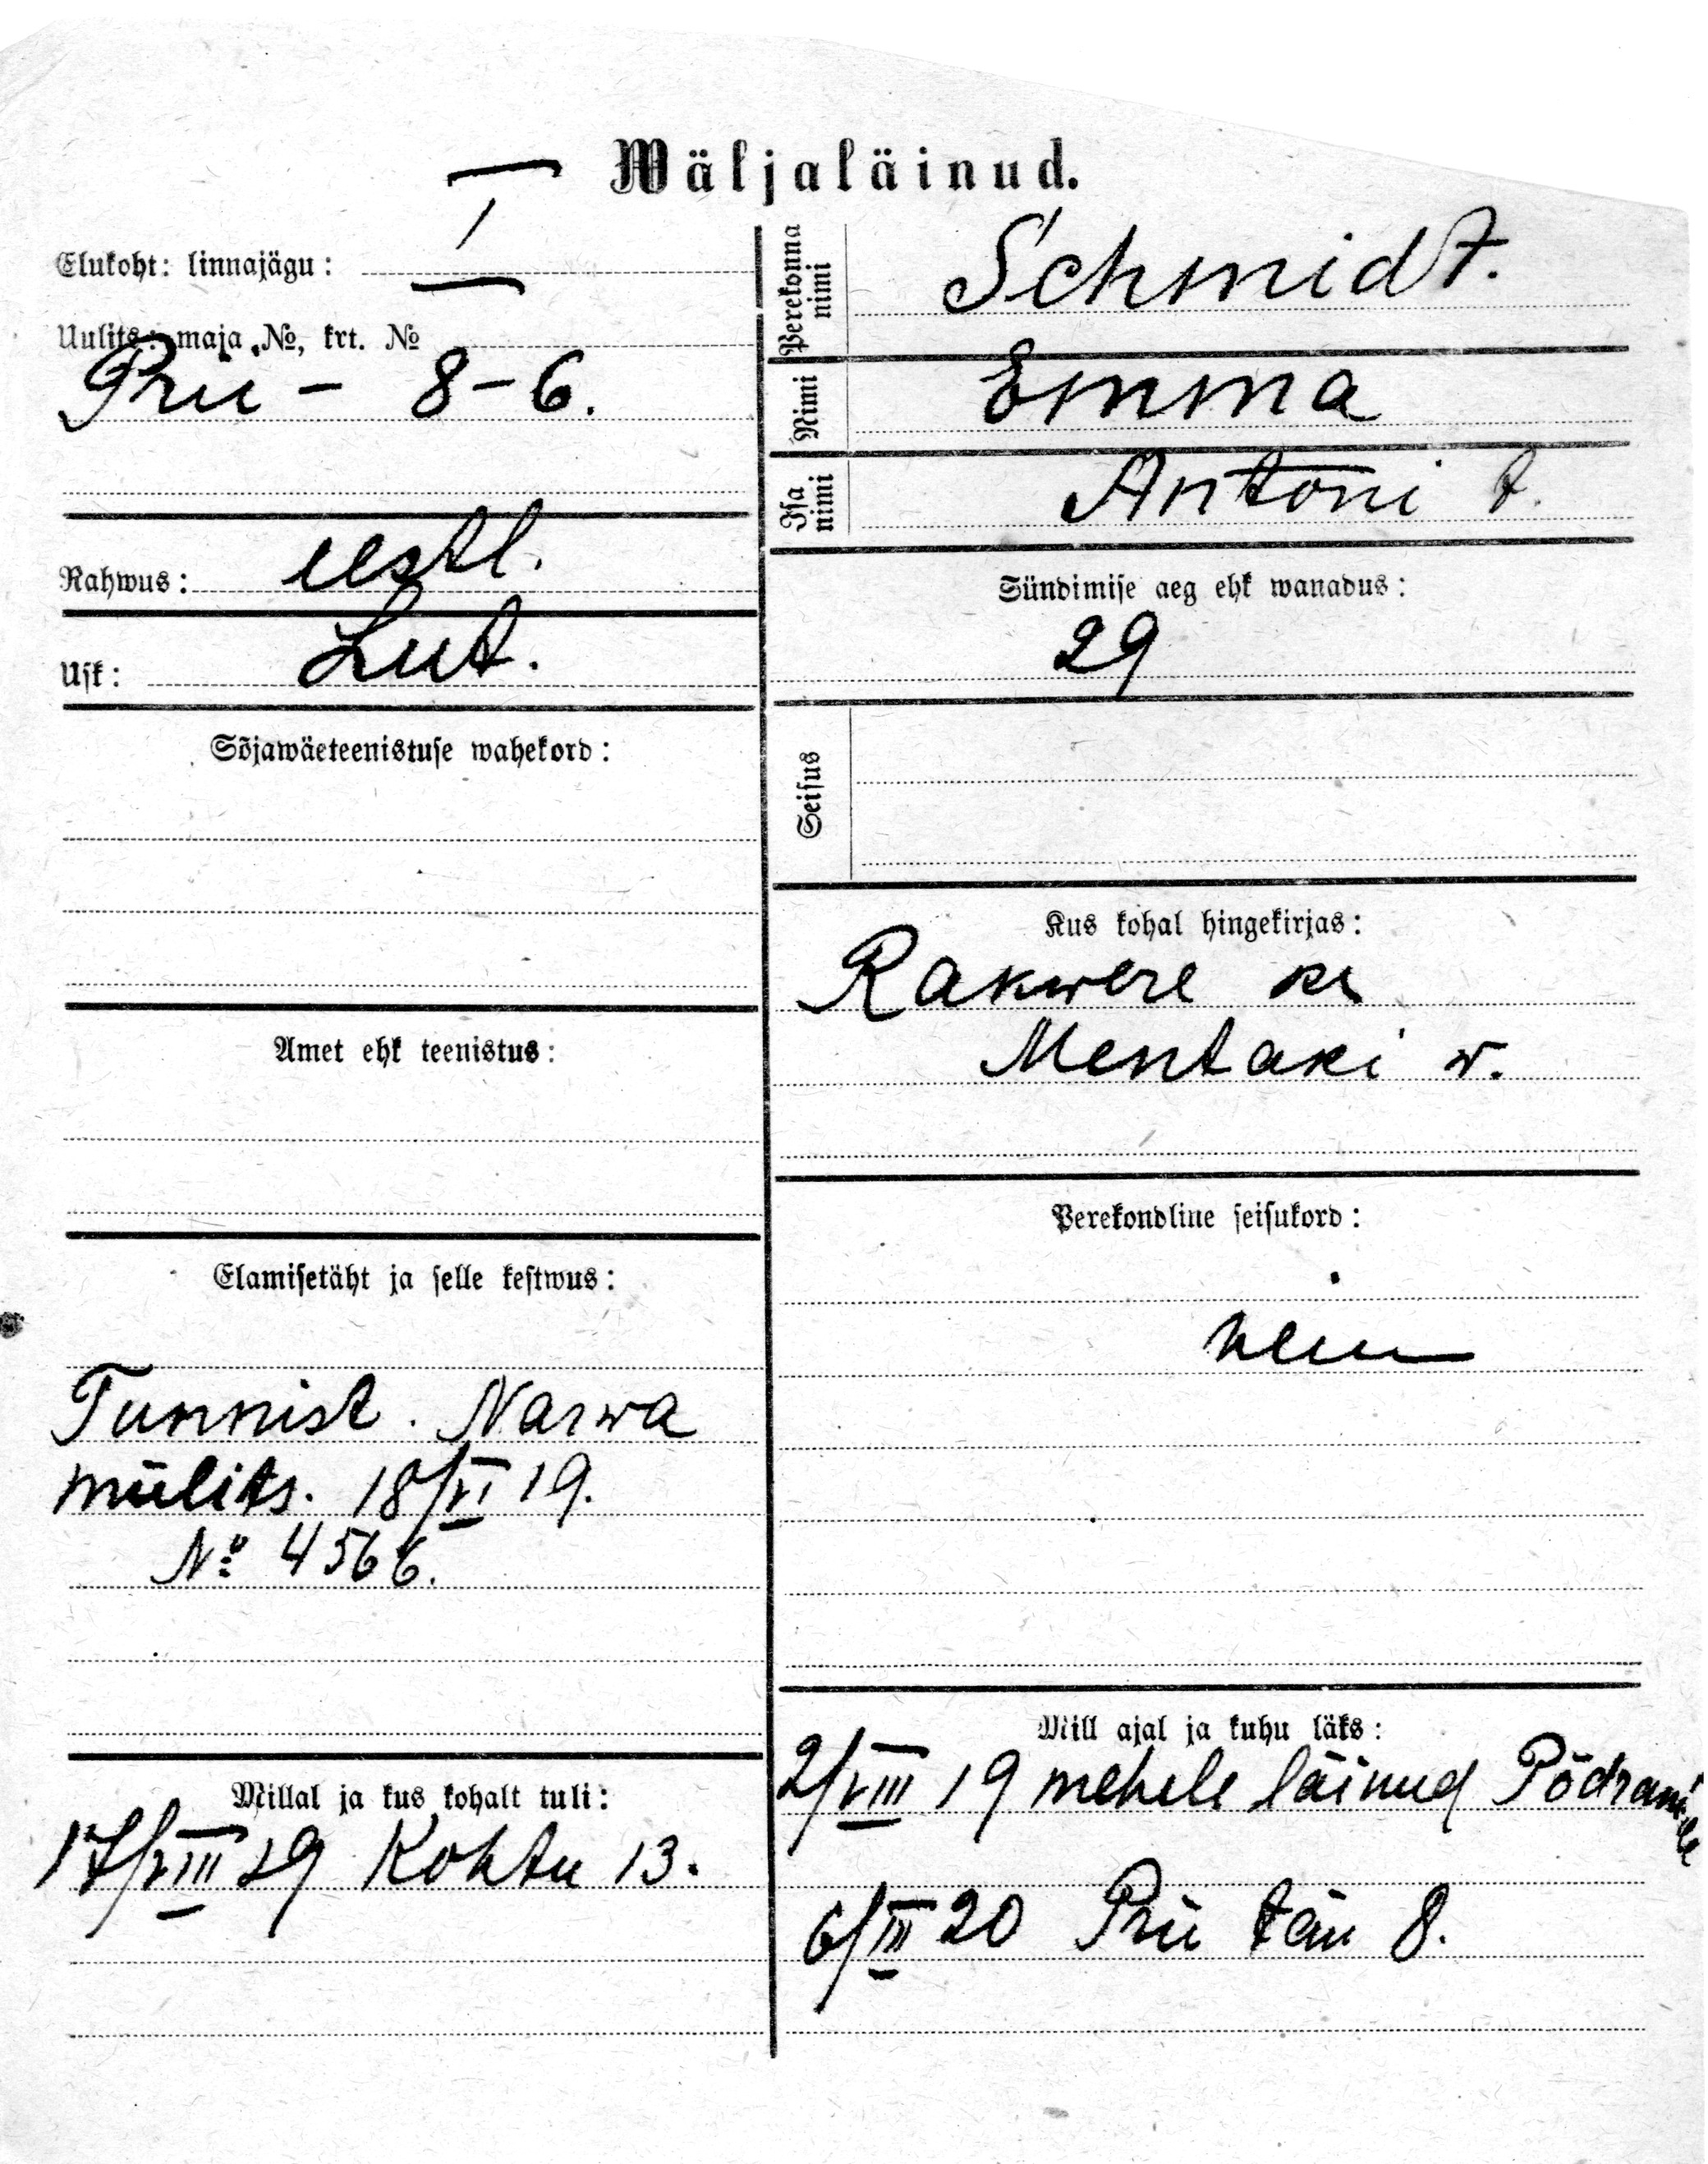 Wäljaläinud.
Elukoht: linnajägu: I
Uulits: maja №, krt. №
Prii - 8-6.
Rahwus: eestl.
Usk: Lut.
Sõjawäeteenistuse wahekord:
Amet ehk teenistus:
Elamisetäht ja selle kestwus:
Tunnist. Narwa
miilits. 18/VI 19.
№ 4566.
Millal ja kus kohalt tuli:
17/VIII 19 Kohtu 13.
Perekonna nimi
Schmidt.
Nimi
Emma
Isa nimi
Antoni t.
Sündimise aeg ehk wanadus:
29
Seisus
Kus kohal hingekirjas:
Rakwere kr
Mentaki w.
Perekondline seisukord:
Mill ajal ja kuhu läks:
2/VIII 19 mehele läinud Põdramile
6/III 20 Prii tän 8.